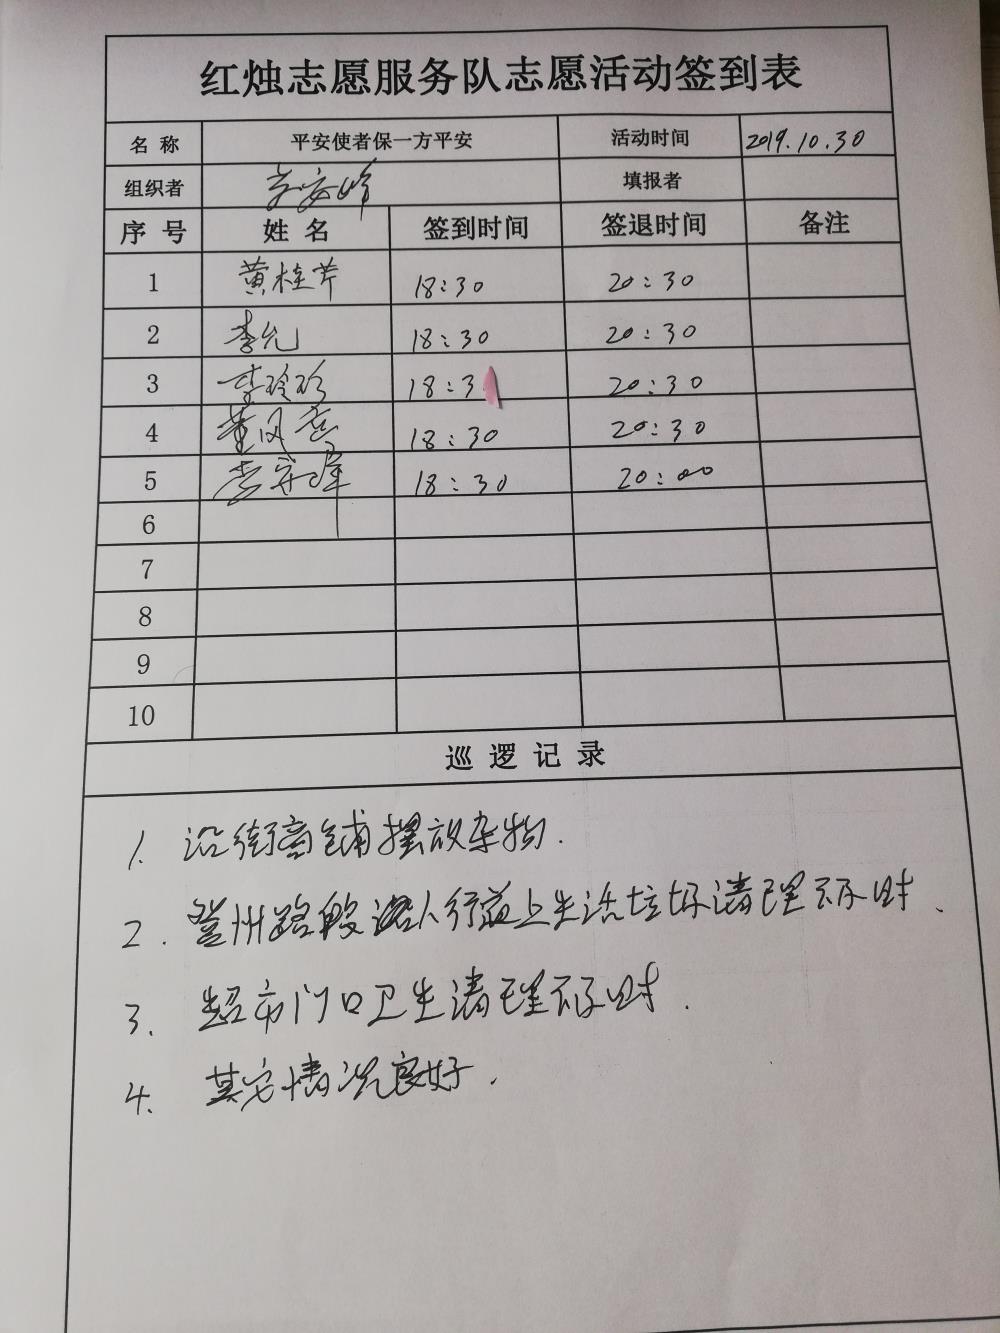 红烛志愿服务队志愿活动签到表
名称 平安使者保一方平安 活动时间 2019.10.30
组织者 填报者
序号 姓名 签到时间 签退时间 备注
1 黄桂芹 18:30 20:30
2 李允 18:30 20:30
3 李玲珍 18:3 20:30
4 董凤 18:30 20:30
5 李 18:30 20:00
6
7
8
9
10
巡逻记录
1. 沿街商铺摆放杂物.
2. 州路段 人行道上生活垃圾清理不及时.
3. 超市门口卫生清理不及时.
4. 其它情况良好.